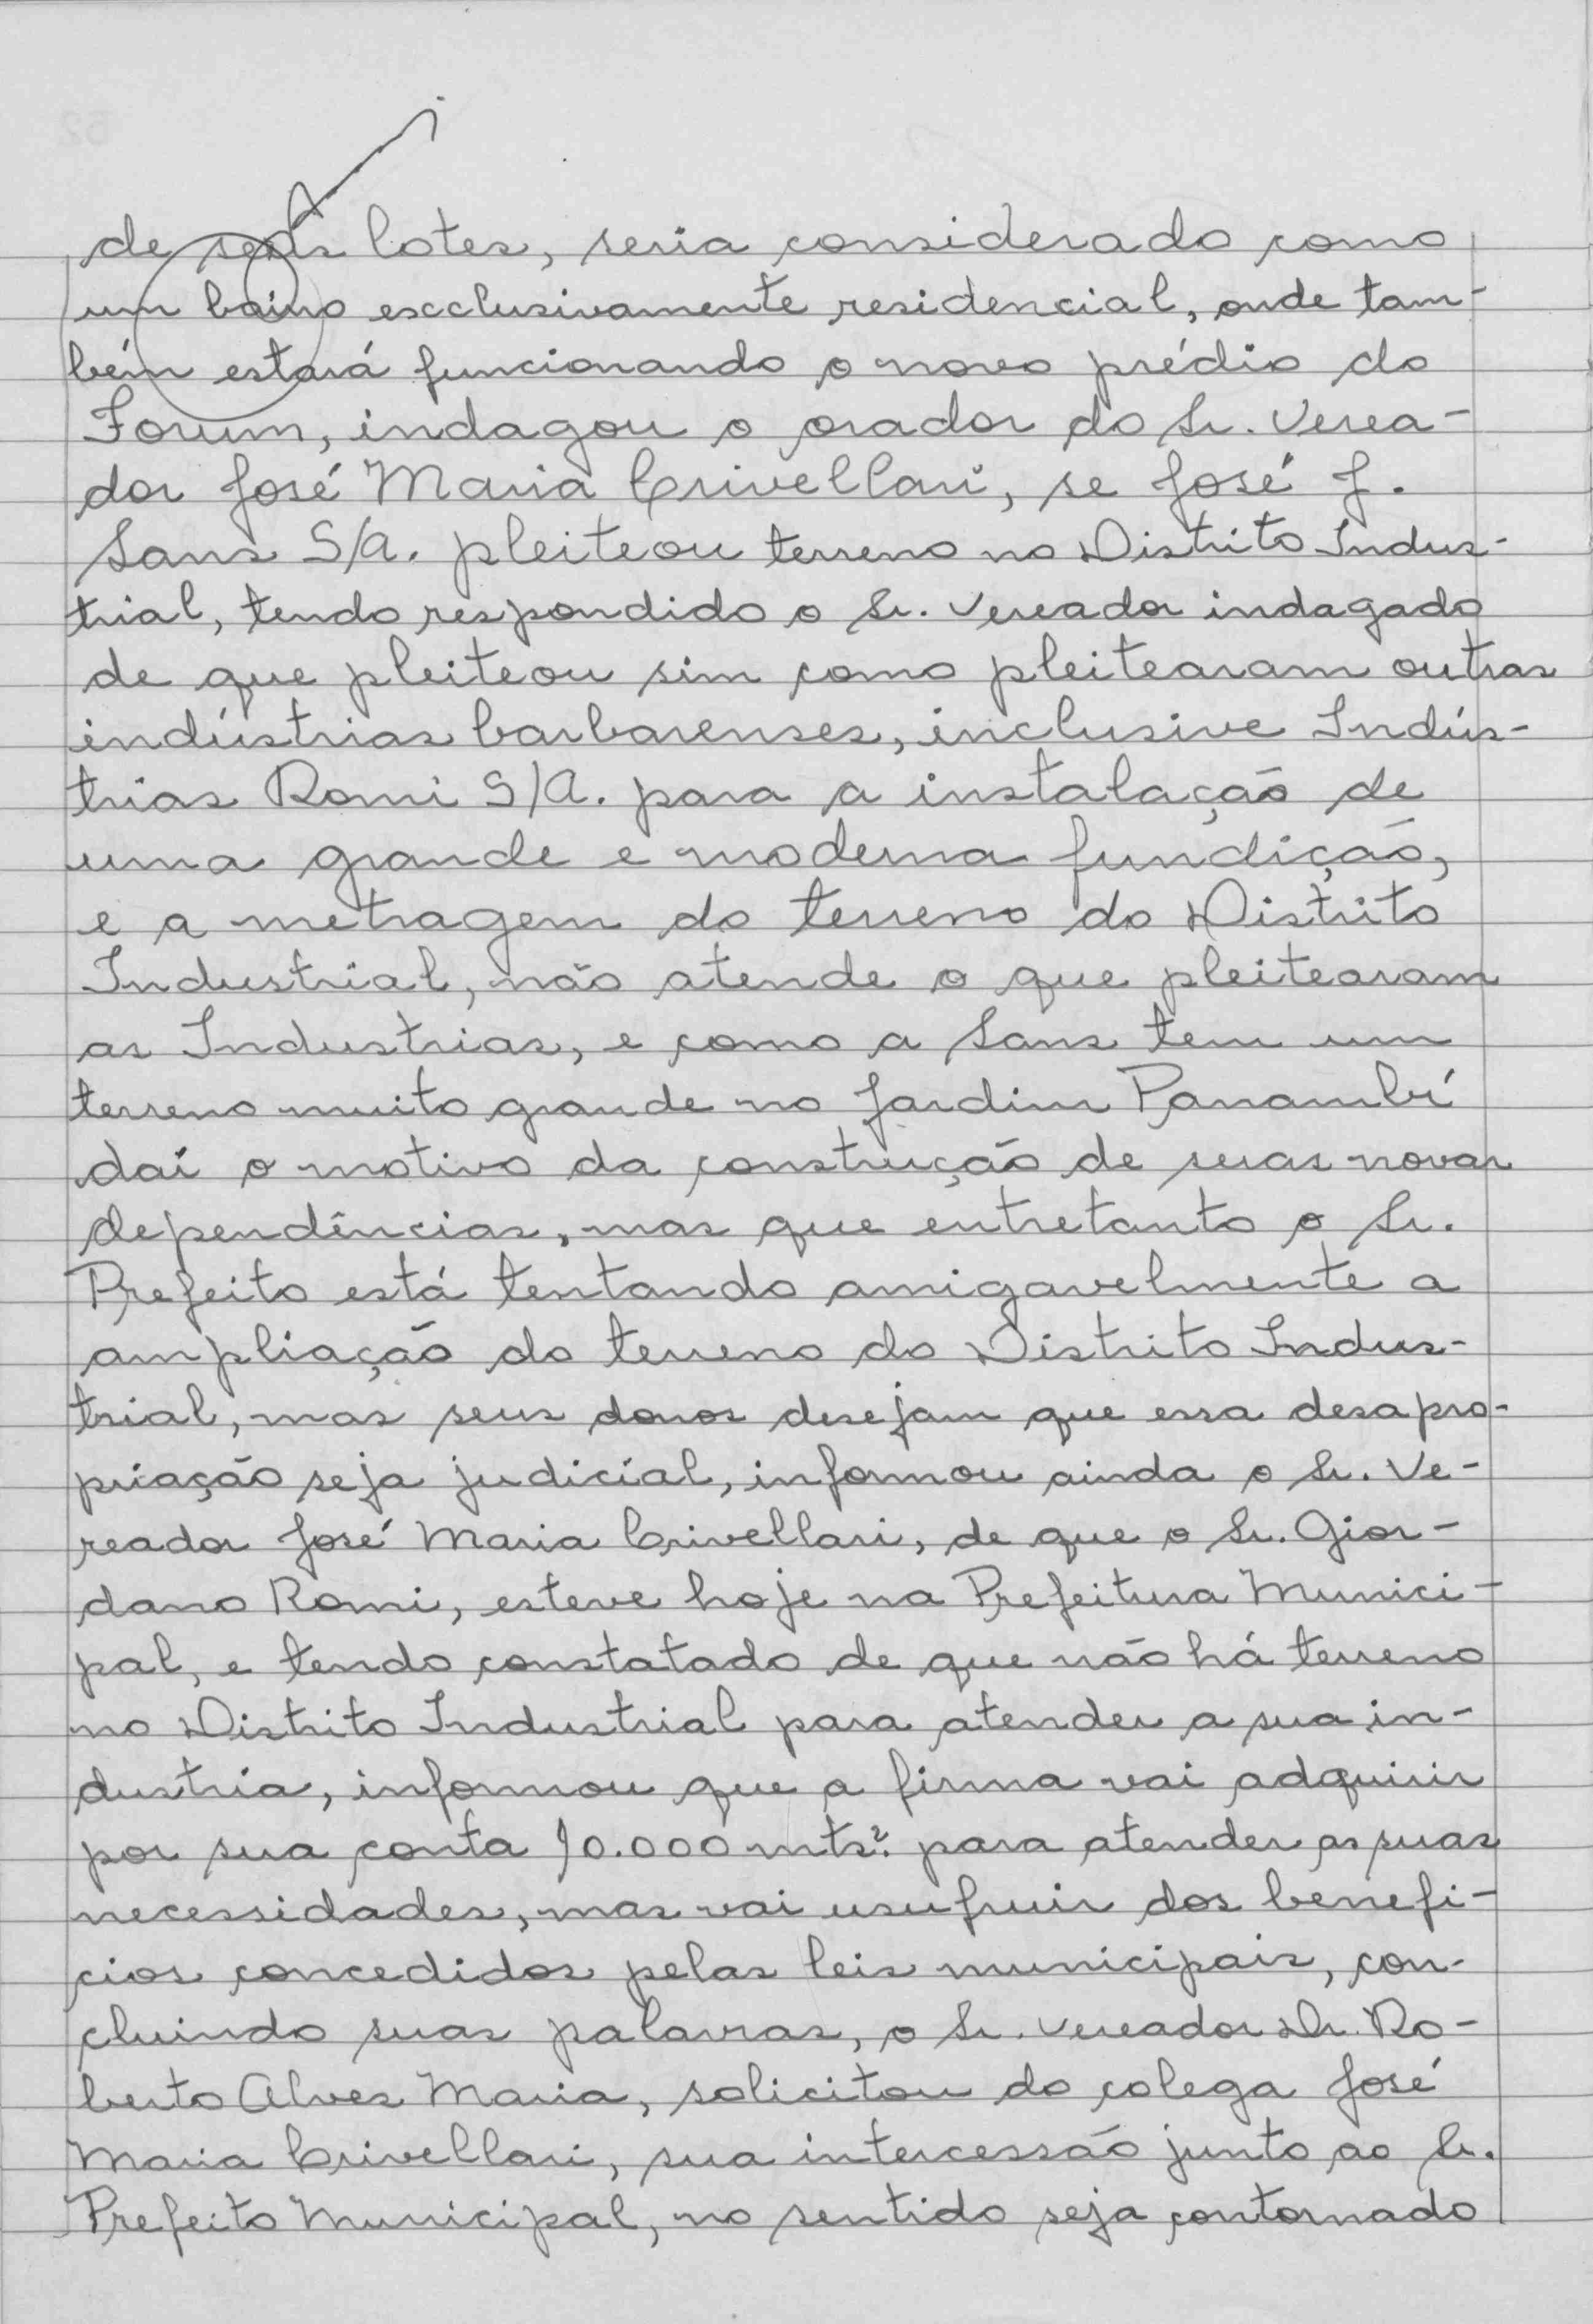 de seus lotes, seria considerado como
um bairro escclusivamente residencial, onde tam-
bém estará funcionando o novo prédio do
Forum, indagou o orador do Sr. Verea-
dor José Maria Crivellari, se José J.
Sans S/A. pleiteou terreno no Distrito Indus-
trial, tendo respondido o Sr. Vereador indagado
de que pleiteou sim como pleitearam outras
indústrias barbarenses, inclusive Indús-
trias Romi S/A. para a instalação de
uma grande e moderna fundição,
e a metragem do terreno do Distrito
Industrial, não atende o que pleitearam
as Industrias, e como a Sans tem um
terreno muito grande no Jardim Panambí
daí o motivo da construção de suas novas
dependências, mas que entretanto o Sr.
Prefeito está tentando amigavelmente a
ampliação do terreno do Distrito Indus-
trial, mas seus donos desejam que essa desapro-
priação seja judicial, informou ainda o Sr. Ve-
reador José Maria Crivellari, de que o Sr. Gior-
dano Romi, esteve hoje na Prefeitura Munici-
pal, e tendo constatado de que não há terreno
no Distrito Industrial para atender a sua in-
dustria, informou que a firma vai adquirir
por sua conta 10.000 mts². para atender as suas
necessidades, mas vai usufruir dos benefi-
cios concedidos pelas leis municipais, con-
cluindo suas palavras, o Sr. Vereador Dr. Ro-
berto Alves Maria, solicitou do colega José
Maria Crivellari, sua intercessão junto ao Sr.
Prefeito Municipal, no sentido seja contornado